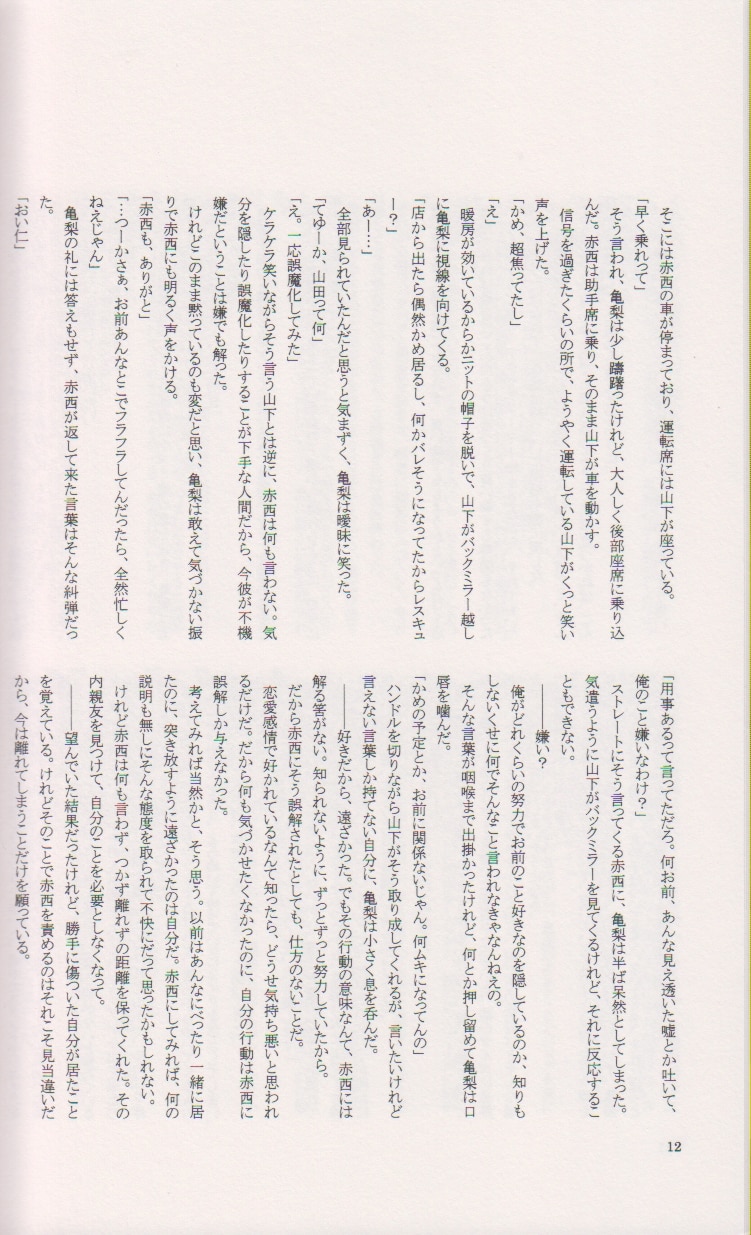 そこには赤西の車が停まっており、運転席には山下が座っている。
「早く乗れって」
そう言われ、亀梨は少し躊躇ったけれど、大人しく後部座席に乗り込
んだ。赤西は助手席に乗り、そのまま山下が車を動かす。
信号を過ぎたくらいの所で、ようやく運転している山下がくっと笑い
声を上げた。
「かめ、超焦ってたし」
「え」
暖房が効いているからかニットの帽子を脱いで、山下がバックミラー越し
に亀梨に視線を向けてくる。
「店から出たら偶然かめ居るし、何かバレそうになってたからレスキュ
ー？」
「あー…」
全部見られていたんだと思うと気まずく、亀梨は曖昧に笑った。
「てゆーか、山田って何」
「え。一応誤魔化してみた」
ケラケラ笑いながらそう言う山下とは逆に、赤西は何も言わない。気
分を隠したり誤魔化したりすることが下手な人間だから、今彼が不機
嫌だということは嫌でも解った。
けれどこのまま黙っているのも変だと思い、亀梨は敢えて気づかない振
りで赤西にも明るく声をかける。
「赤西も、ありがと」
「…つーかさぁ、お前あんなとこでフラフラしてんだったら、全然忙しく
ねえじゃん」
亀梨の礼には答えもせず、赤西が返して来た言葉はそんな糾弾だっ
た。
「おい仁」
「用事あるって言ってただろ。何お前、あんな見え透いた嘘とか吐いて、
俺のこと嫌いなわけ？」
ストレートにそう言ってくる赤西に、亀梨は半ば呆然としてしまった。
気遣うように山下がバックミラーを見てくるけれど、それに反応するこ
ともできない。
――嫌い？
俺がどれくらいの努力でお前のこと好きなのを隠しているのか、知りも
しないくせに何でそんなこと言われなきゃなんねえの。
そんな言葉が咽喉まで出掛かったけれど、何とか押し留めて亀梨は口
唇を噛んだ。
「かめの予定とか、お前に関係ないじゃん。何ムキになってんの」
ハンドルを切りながら山下がそう取り成してくれるが、言いたいけれど
言えない言葉しか持てない自分に、亀梨は小さく息を呑んだ。
――好きだから、遠ざかった。でもその行動の意味なんて、赤西には
解る筈がない。知られないように、ずっとずっと努力していたから。
だから赤西にそう誤解されたとしても、仕方のないことだ。
恋愛感情で好かれているなんて知ったら、どうせ気持ち悪いと思われ
るだけだ。だから何も気づかせたくなかったのに、自分の行動は赤西に
誤解しか与えなかった。
考えてみれば当然かと、そう思う。以前はあんなにべったり一緒に居
たのに、突き放すように遠ざかったのは自分だ。赤西にしてみれば、何の
説明も無しにそんな態度を取られて不快にだって思ったかもしれない。
けれど赤西は何も言わず、つかず離れずの距離を保ってくれた。その
内親友を見つけて、自分のことを必要としなくなって。
――望んでいた結果だったけれど、勝手に傷ついた自分が居たこと
を覚えている。けれどそのことで赤西を責めるのはそれこそ見当違いだ
から、今は離れてしまうことだけを願っている。
12